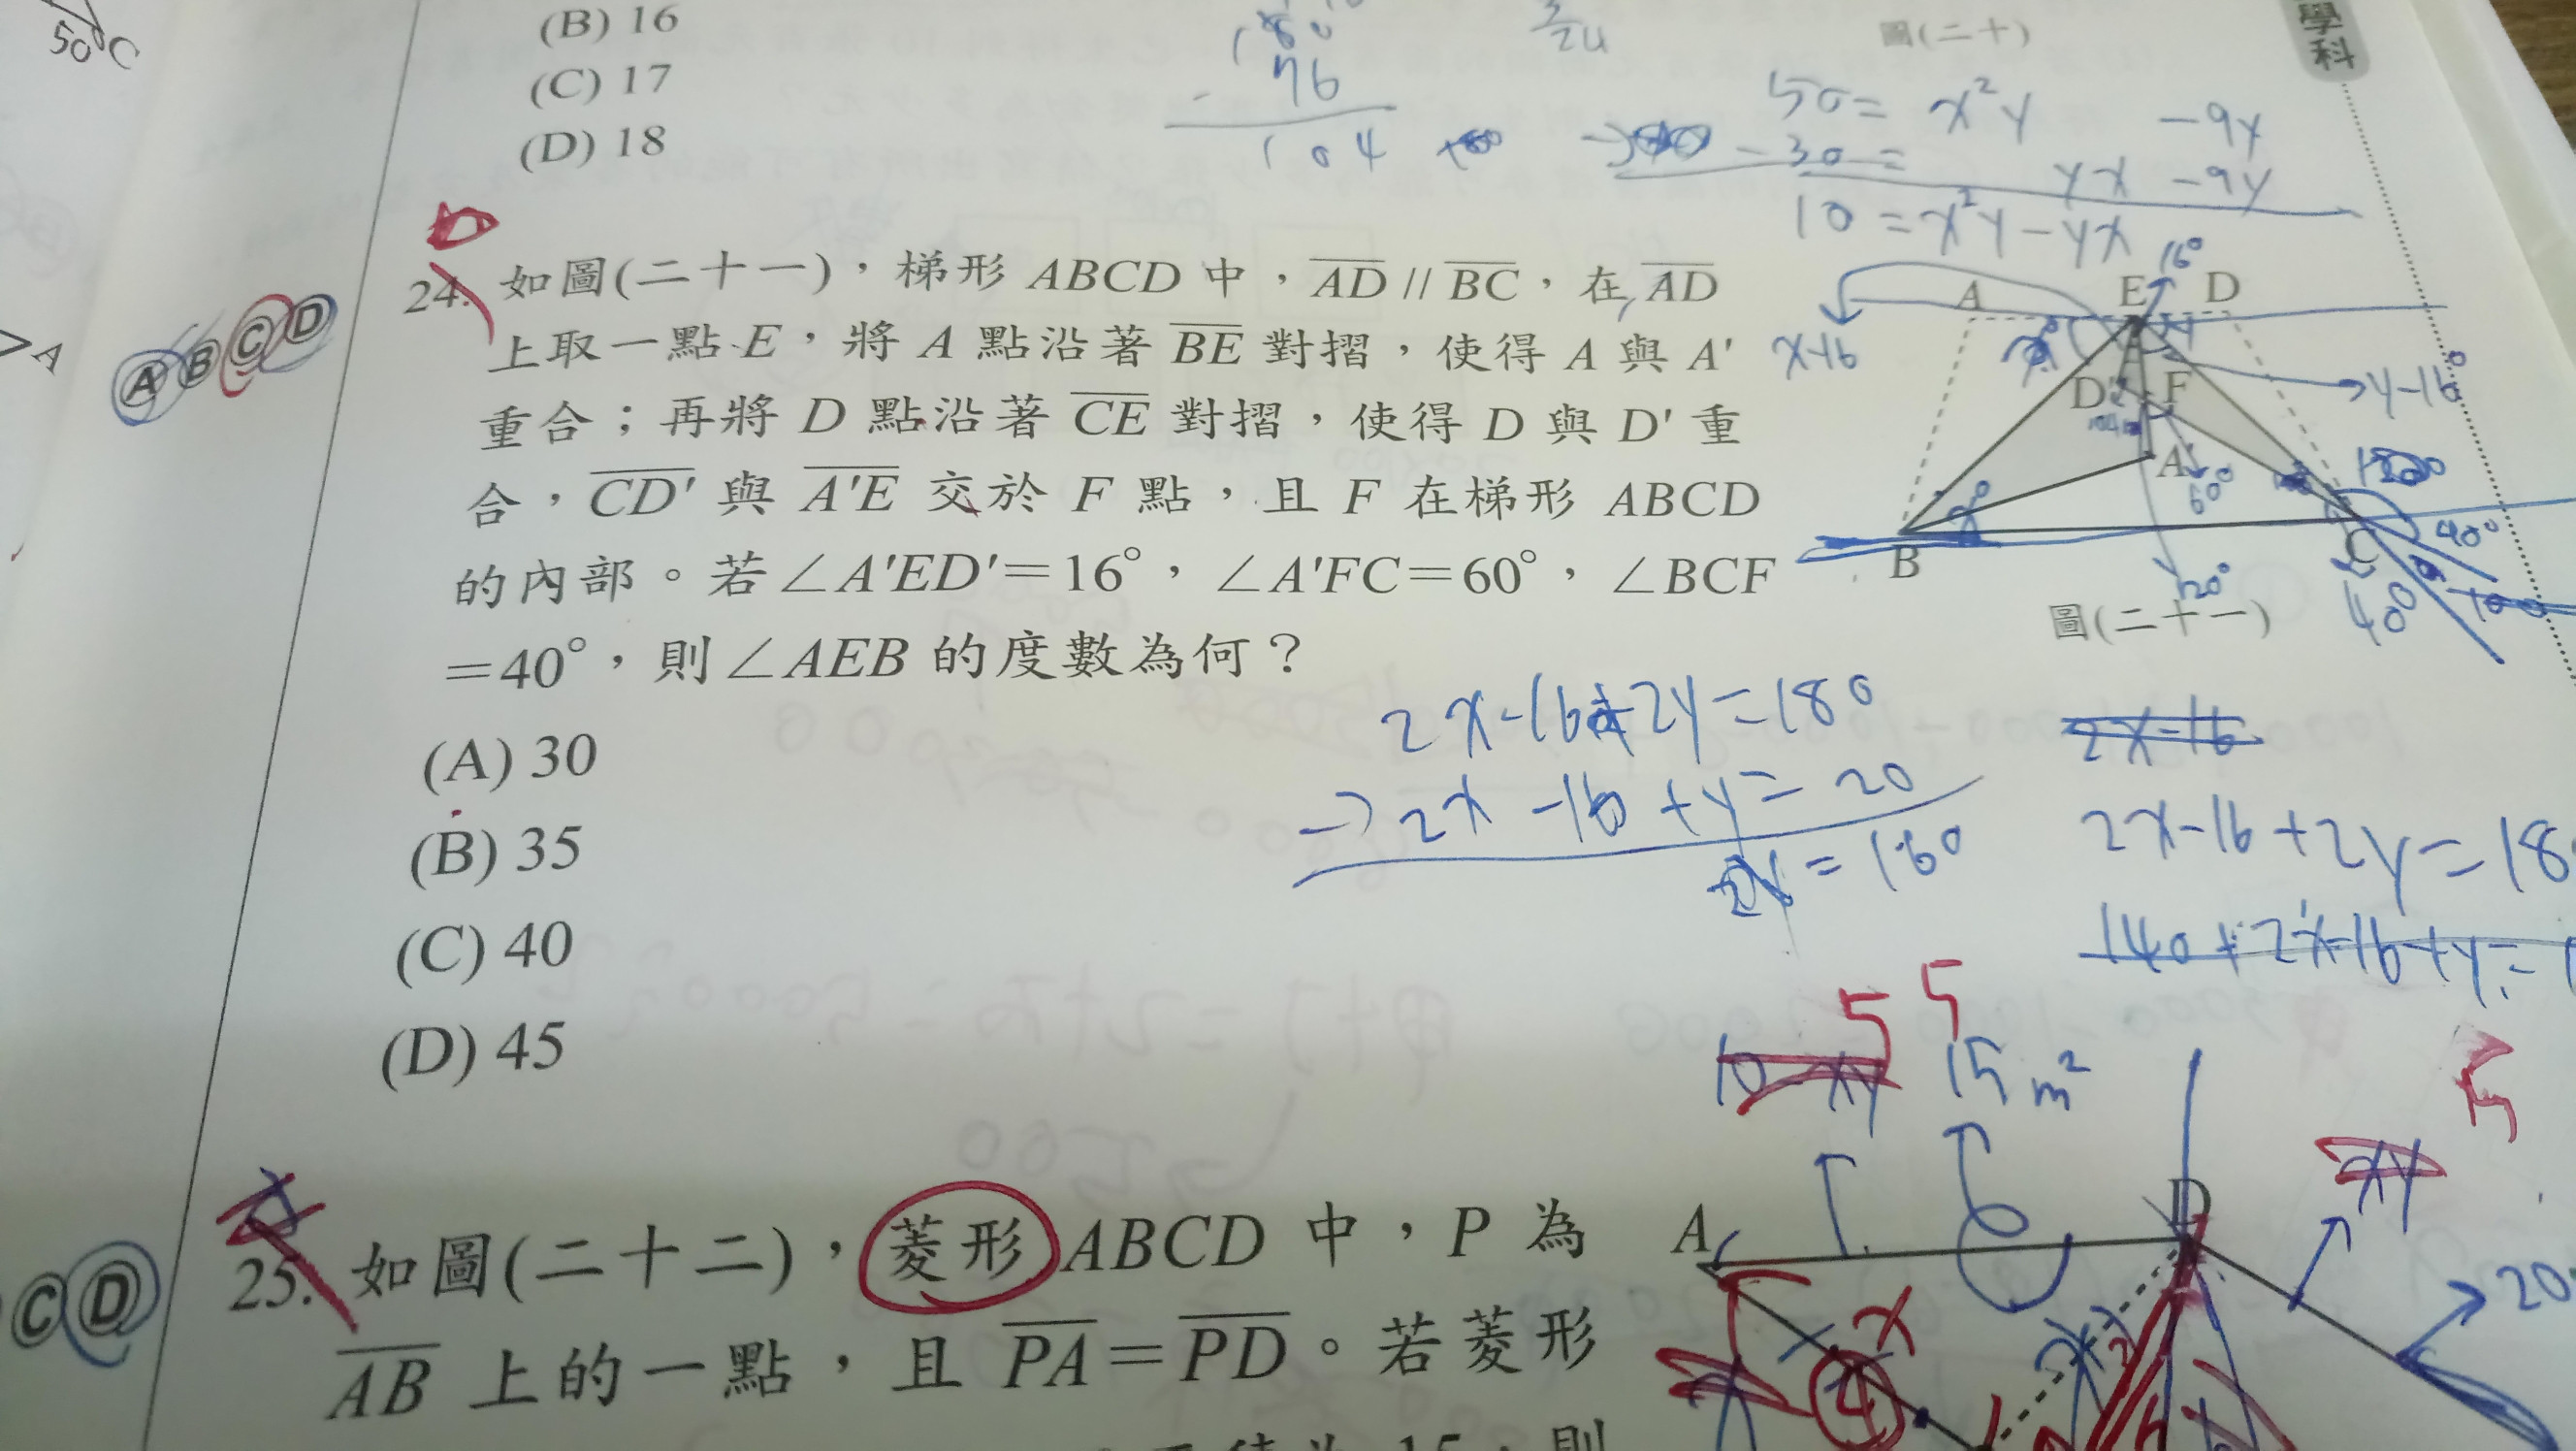 50°C
(B) 16
(C) 17
(D) 18
180
- 76
104
圖(二十)
學科
50 = x²y -9y
-30 = yx -9y
10 = x²y - yx
24. 如圖(二十一)，梯形 ABCD 中，AD // BC，在 AD
上取一點 E，將 A 點沿著 BE 對摺，使得 A 與 A'
重合；再將 D 點沿著 CE 對摺，使得 D 與 D' 重
合，CD' 與 A'E 交於 F 點，且 F 在梯形 ABCD
的內部。若∠A'ED'=16°，∠A'FC=60°，∠BCF
=40°，則∠AEB 的度數為何？
(A) 30
(B) 35
(C) 40
(D) 45
A B C D
A
16°
A E D
x-16
D' F
y-16°
A'
60°
40°
B C
120°
40°
圖(二十一)
2x-16+2y=180
→2x-16+y=20
=160
2x-16
2x-16+2y=18
140+2x-16+y=1
5 5
10-xy 15 m²
5
xy
20
C D
25. 如圖(二十二)，菱形 ABCD 中，P 為
AB 上的一點，且 PA=PD。若菱形
15，則
A D
x
4